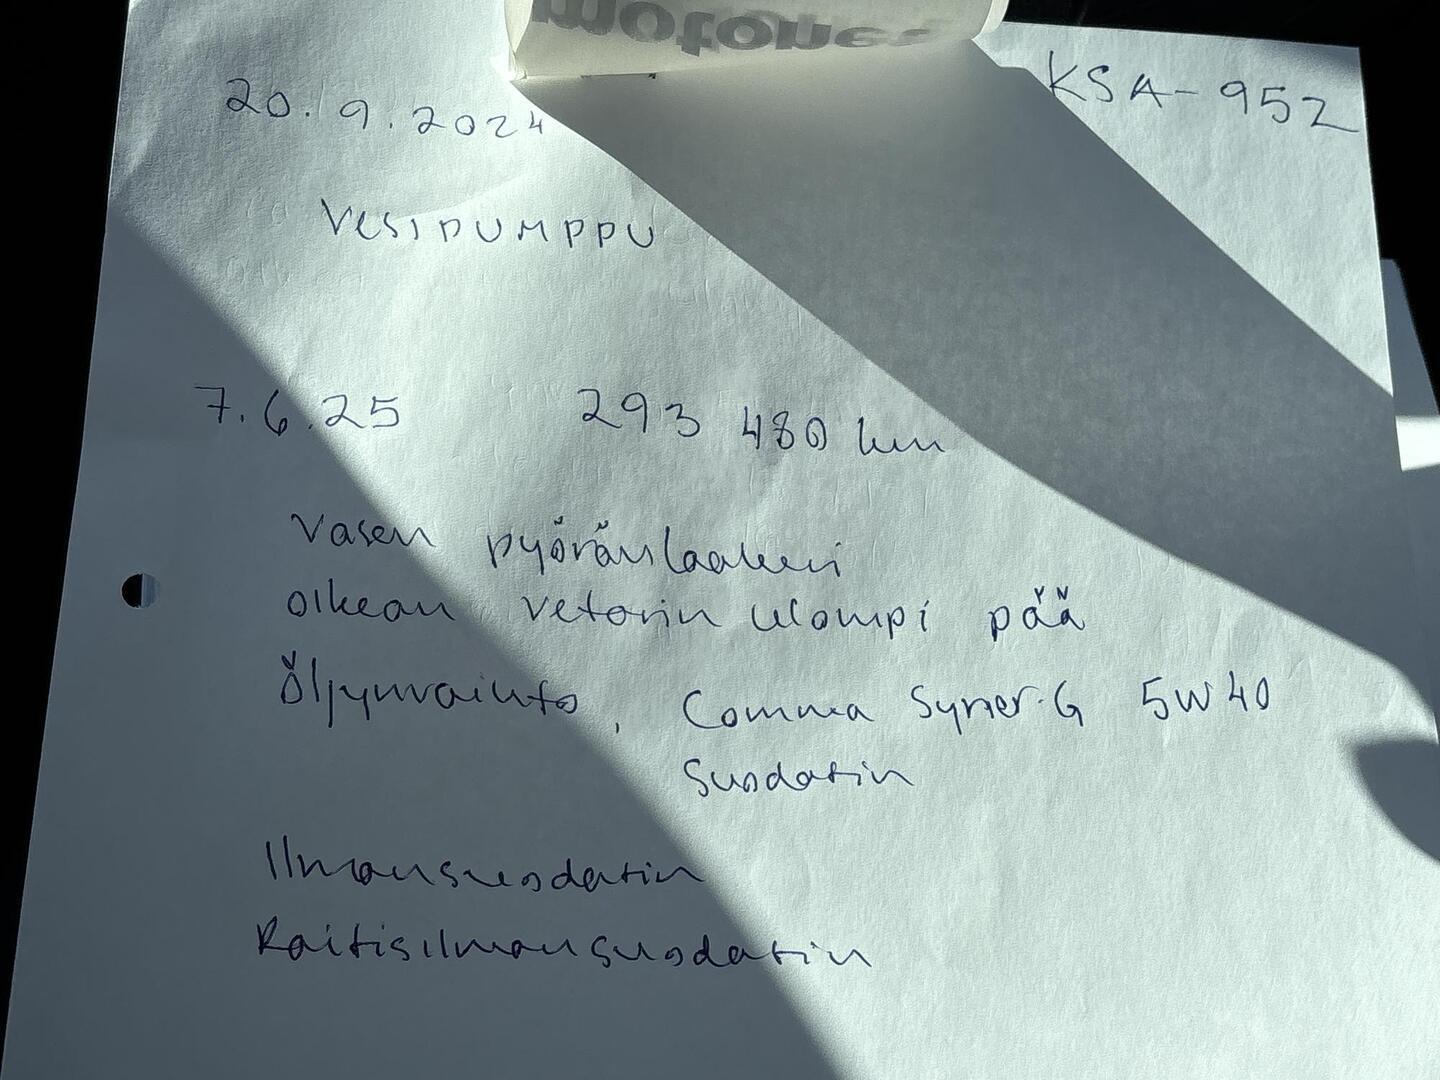 motonet
20.9.2024
KSA-952
VESIPUMPPU
7.6.25 293 480 km
Vasen pyöränlaakeri
oikean vetarin ulompi pää
Öljynvaihto, Comma Syner-G 5W40
Suodatin
Ilmansuodatin
Raitisilmansuodatin